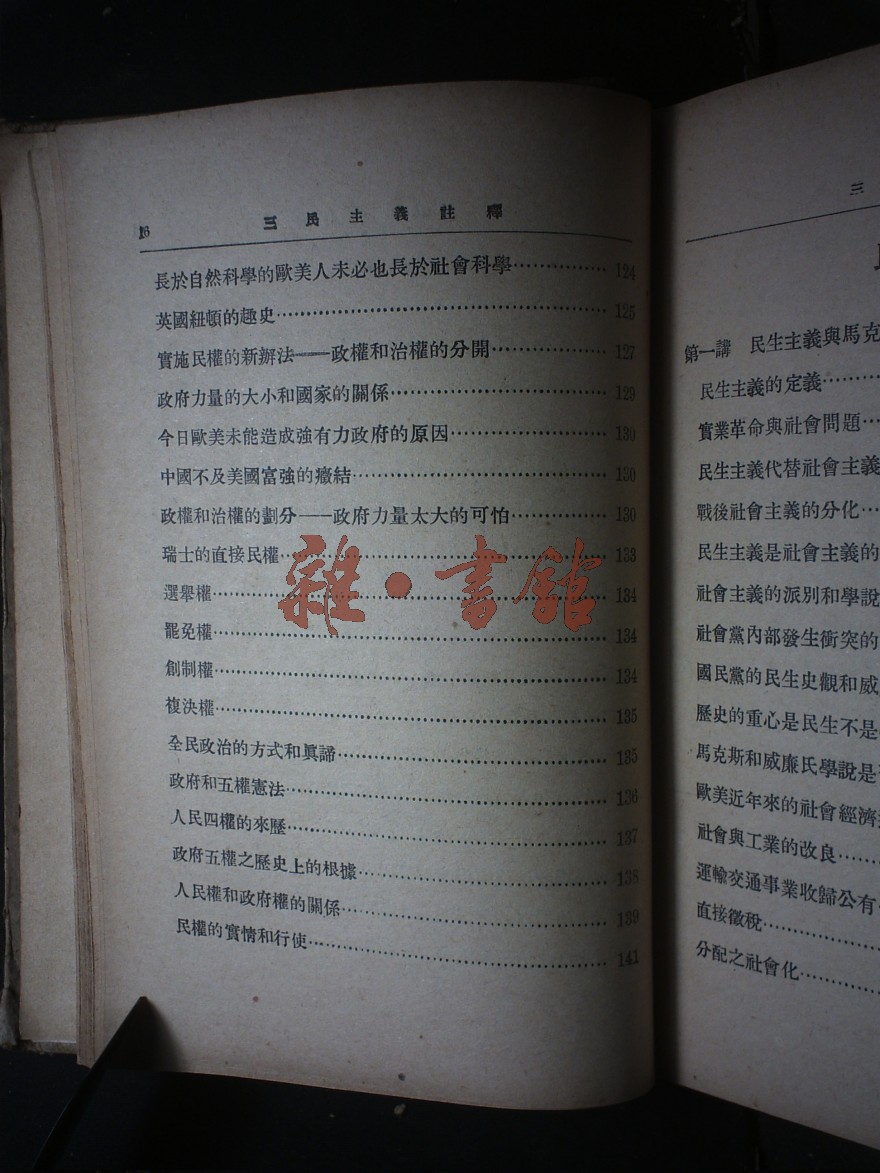 16 三民主義註釋
長於自然科學的歐美人未必也長於社會科學……………124
英國紐頓的趣史……………125
實施民權的新辦法——政權和治權的分開……………127
政府力量的大小和國家的關係……………129
今日歐美未能造成強有力政府的原因……………130
中國不及美國富強的癥結……………130
政權和治權的劃分——政府力量太大的可怕……………130
瑞士的直接民權……………133
選舉權……………134
罷免權……………134
創制權……………134
複決權……………135
全民政治的方式和眞諦……………135
政府和五權憲法……………136
人民四權的來歷……………137
政府五權之歷史上的根據……………138
人民權和政府權的關係……………139
民權的實情和行使……………141
雜·書館
三
第一講 民生主義與馬克
民生主義的定義……
實業革命與社會問題……
民生主義代替社會主義
戰後社會主義的分化……
民生主義是社會主義的
社會主義的派別和學說
社會黨內部發生衝突的
國民黨的民生史觀和威
歷史的重心是民生不是
馬克斯和威廉氏學說是
歐美近年來的社會經濟
社會與工業的改良……
運輸交通事業收歸公有
直接徵稅……
分配之社會化……